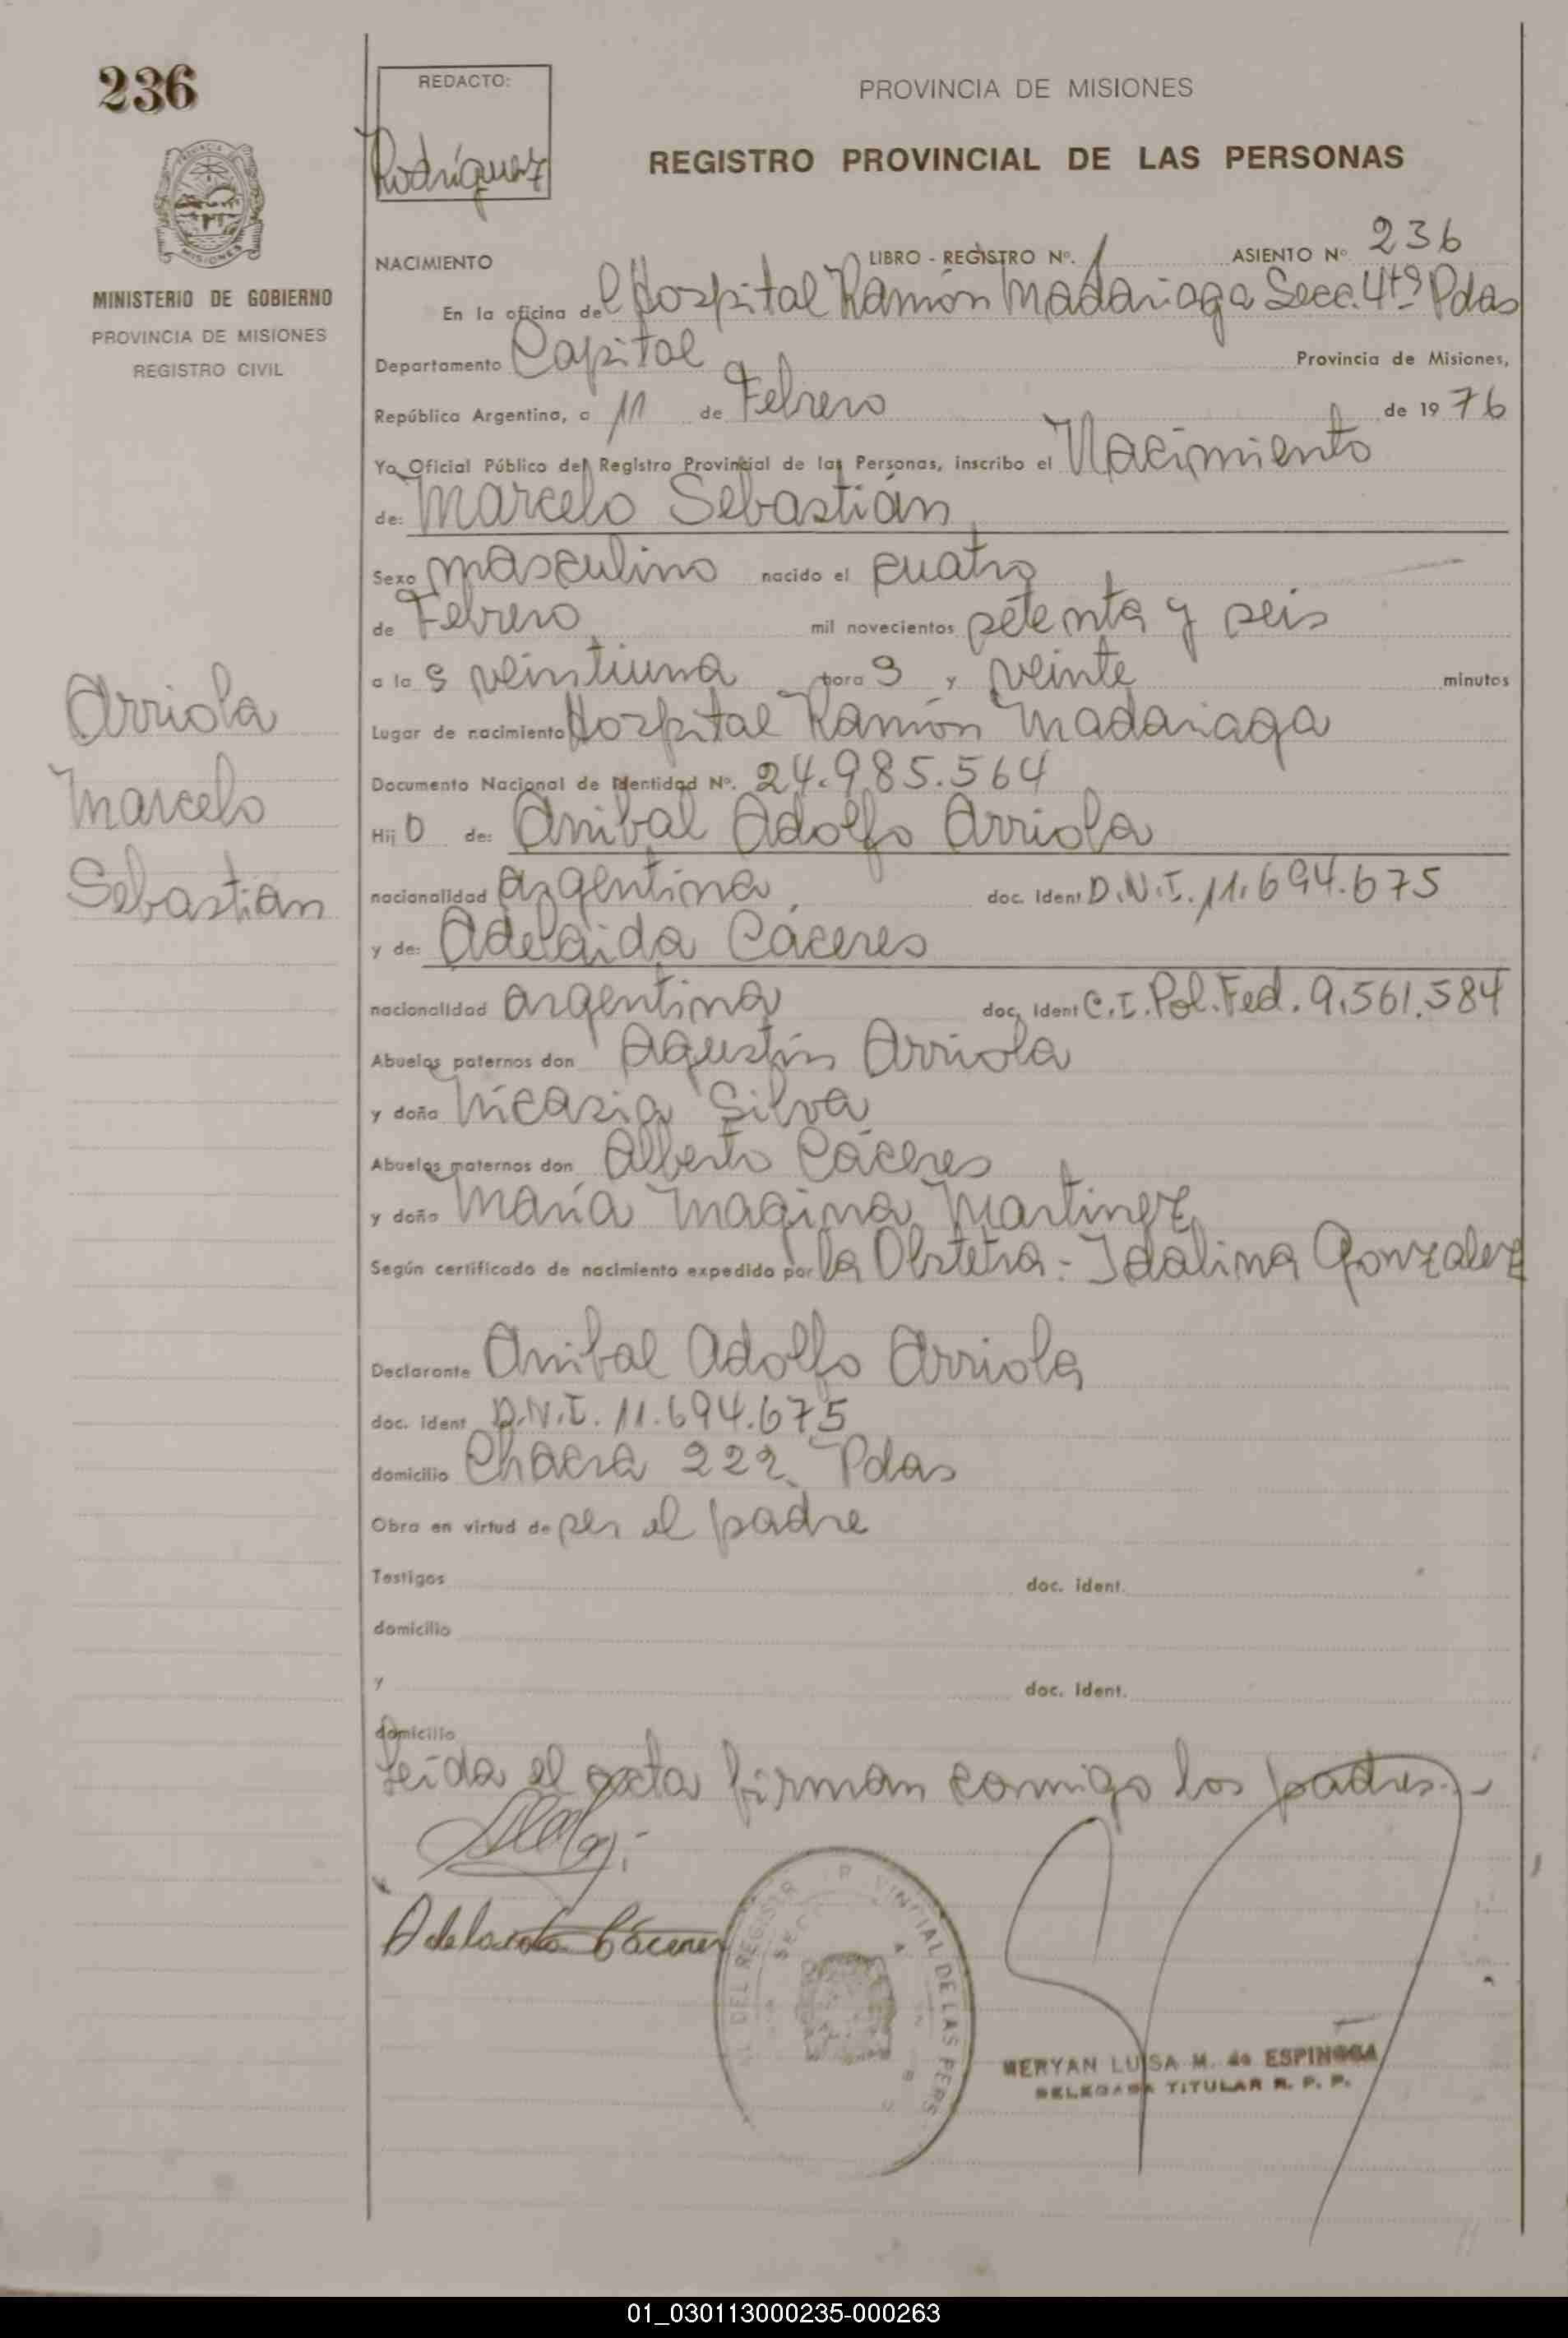 236
REDACTO:
Rodríguez
PROVINCIA DE MISIONES
REGISTRO PROVINCIAL DE LAS PERSONAS
PROVINCIA
MISIONES
MINISTERIO DE GOBIERNO
PROVINCIA DE MISIONES
REGISTRO CIVIL
NACIMIENTO LIBRO - REGISTRO Nº. 1 ASIENTO Nº 236
En la oficina del Hospital Ramón Madariaga Secc. 4tª Pdas
Departamento Capital Provincia de Misiones,
República Argentina, a 11 de Febrero de 1976
Yo Oficial Público del Registro Provincial de las Personas, inscribo el Nacimiento
de: Marcelo Sebastián
Sexo masculino nacido el cuatro
de Febrero mil novecientos setenta y seis
a las veintiuna horas y veinte minutos
Lugar de nacimiento Hospital Ramón Madariaga
Documento Nacional de Identidad Nº. 24.985.564
Hijo de: Anibal Adolfo Arriola
nacionalidad argentina doc. Ident D.N.I. 11.694.675
y de: Adelaida Cáceres
nacionalidad argentina doc. Ident C.I. Pol. Fed. 9.561.584
Abuelos paternos don Agustín Arriola
y doña Nicasia Silva
Abuelos maternos don Alberto Cáceres
y doña María Magina Martinez
Según certificado de nacimiento expedido por la Obstetra - Idalina Gonzalez
Declarante Anibal Adolfo Arriola
doc. ident D.N.I. 11.694.675
domicilio Chacra 222 Pdas
Obra en virtud de ser el padre
Testigos doc. ident.
domicilio
y doc. Ident.
domicilio
Leída el acta firman conmigo los padres.
Arriola
Marcelo
Sebastián
Adelaida Cáceres
DEL REGISTR P VINCIAL DE LAS PERS
MERYAN LUISA M. de ESPINOSA
DELEGADA TITULAR R. P. P.
01_030113000235-000263